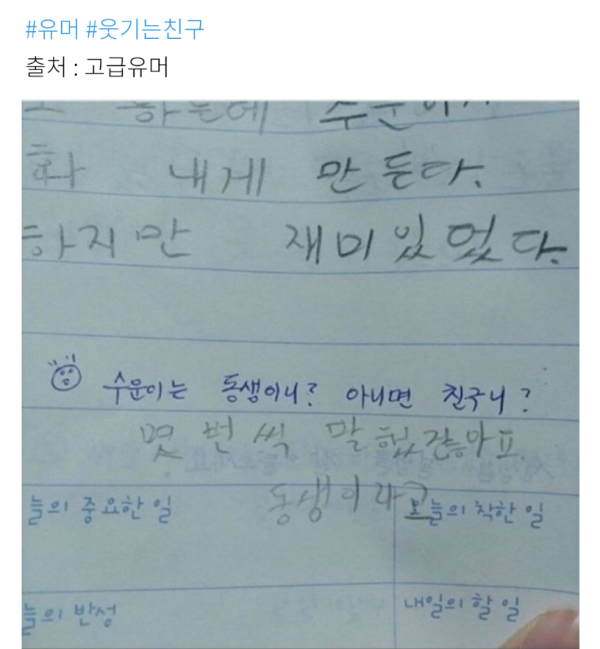 #유머 #웃기는친구
출처 : 고급유머
하는데 수운이가
화 내게 만든다.
하지만 재미있었다.
수운이는 동생이니? 아니면 친구니?
몇 번씩 말했잖아요
동생이라고
늘의 중요한 일 오늘의 착한 일
늘의 반성 내일의 할 일